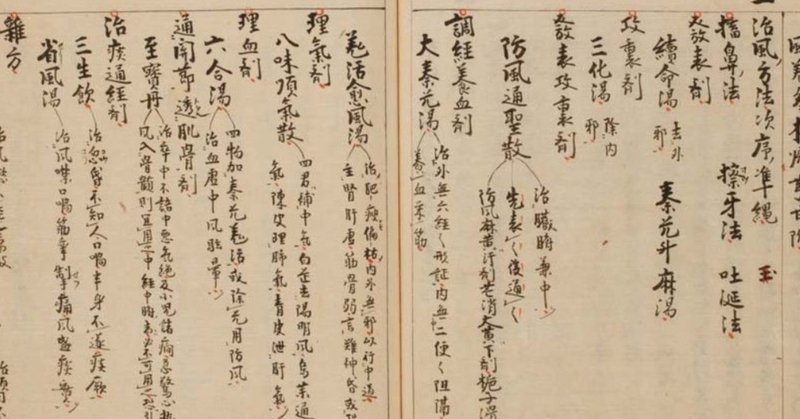 治風方法次序準縄
搐鼻法 擦牙法 吐涎法
發表剤
續命湯 去外邪 秦艽升麻湯
攻裏剤
三化湯 除内邪
發表攻裏剤
防風通聖散
治臓腑兼中
先表〻後通〻
防風麻黄汗剤芒消大黄下剤梔子滑
調經養血剤
大秦艽湯
治外無六經〻形証内無二便〻阻隔
養血栄筋
羌活愈風湯
治肥痩偏枯内外無邪以行中道
主腎肝虚筋骨弱言難神昏或
理氣剤
八味順氣散
四君補中氣白芷去陽明風烏薬通
氣陳皮理肺氣青皮泄肝氣
理血剤
六合湯
四物加秦艽羌活或除艽用防風
治血虚中風眩暈
通関節透肌骨剤
至寶丹
治卒中不語中悪氣絶及小児諸癇急驚心熱
風入骨髄則宜用
治痰通經剤
三生飲
治忽昏不知人口喎半身不遂痰厥
省風湯
治風噤口喎筋攣掣痛風盛痰實
雜方